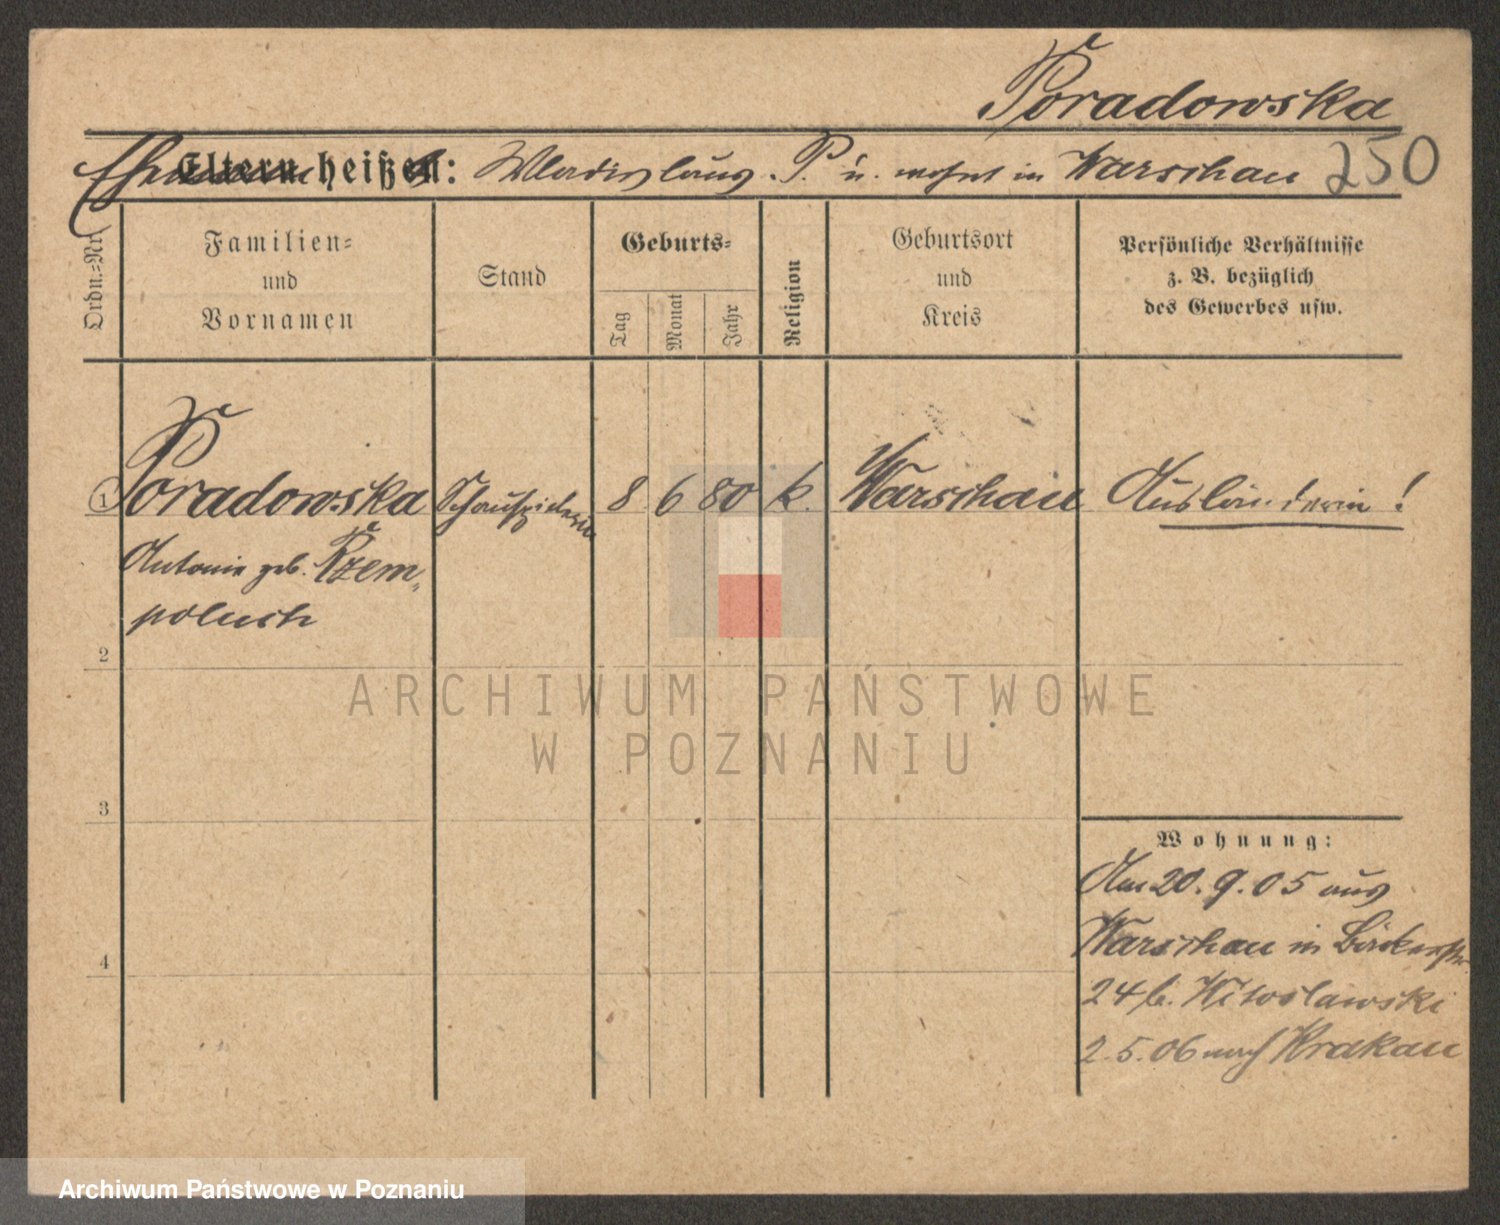 Poradowska
Ehemann heißt: Wladislaus P. u. wohnt in Warschau 250
Ordn.-Nr.
Familien-
und
Vornamen
Stand
Geburts-
Tag
Monat
Jahr
Religion
Geburtsort
und
Kreis
Persönliche Verhältnisse
z. B. bezüglich
des Gewerbes usw.
1 Poradowska Schauspielerin 8 6 80 k. Warschau Ausländerin!
Antonie geb. Rzem-
poluch
2
3
4
Wohnung:
Am 20.9.05 aus
Warschau in Bäckerstr.
24 b. Witoslawski
2.5.06 nach Krakau
ARCHIWUM PAŃSTWOWE
W POZNANIU
Archiwum Państwowe w Poznaniu